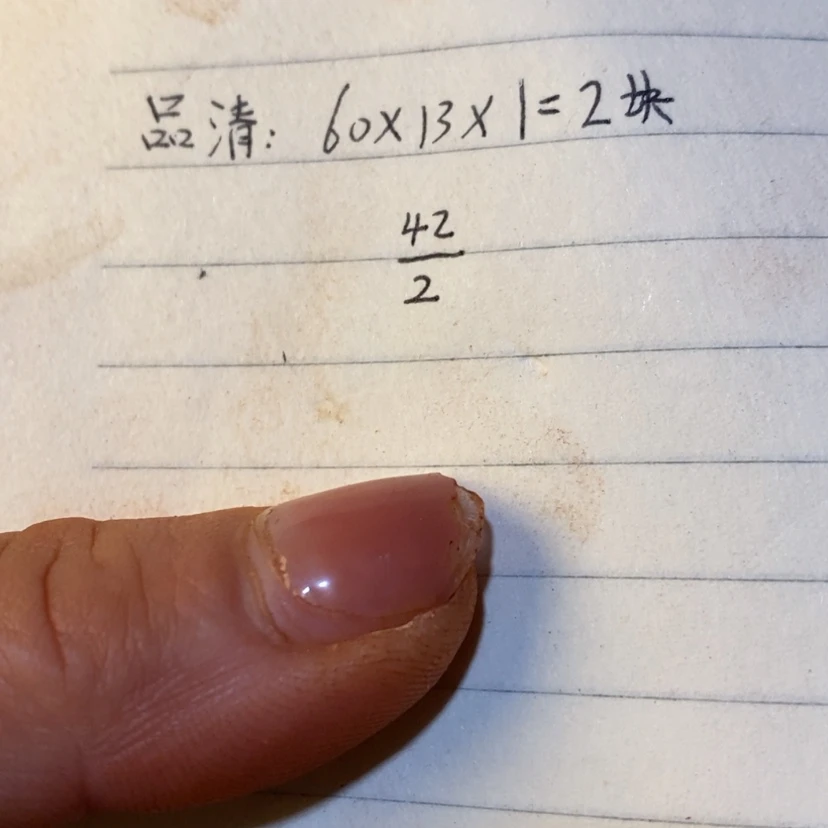 品清: 60×13×1=2块
42
2